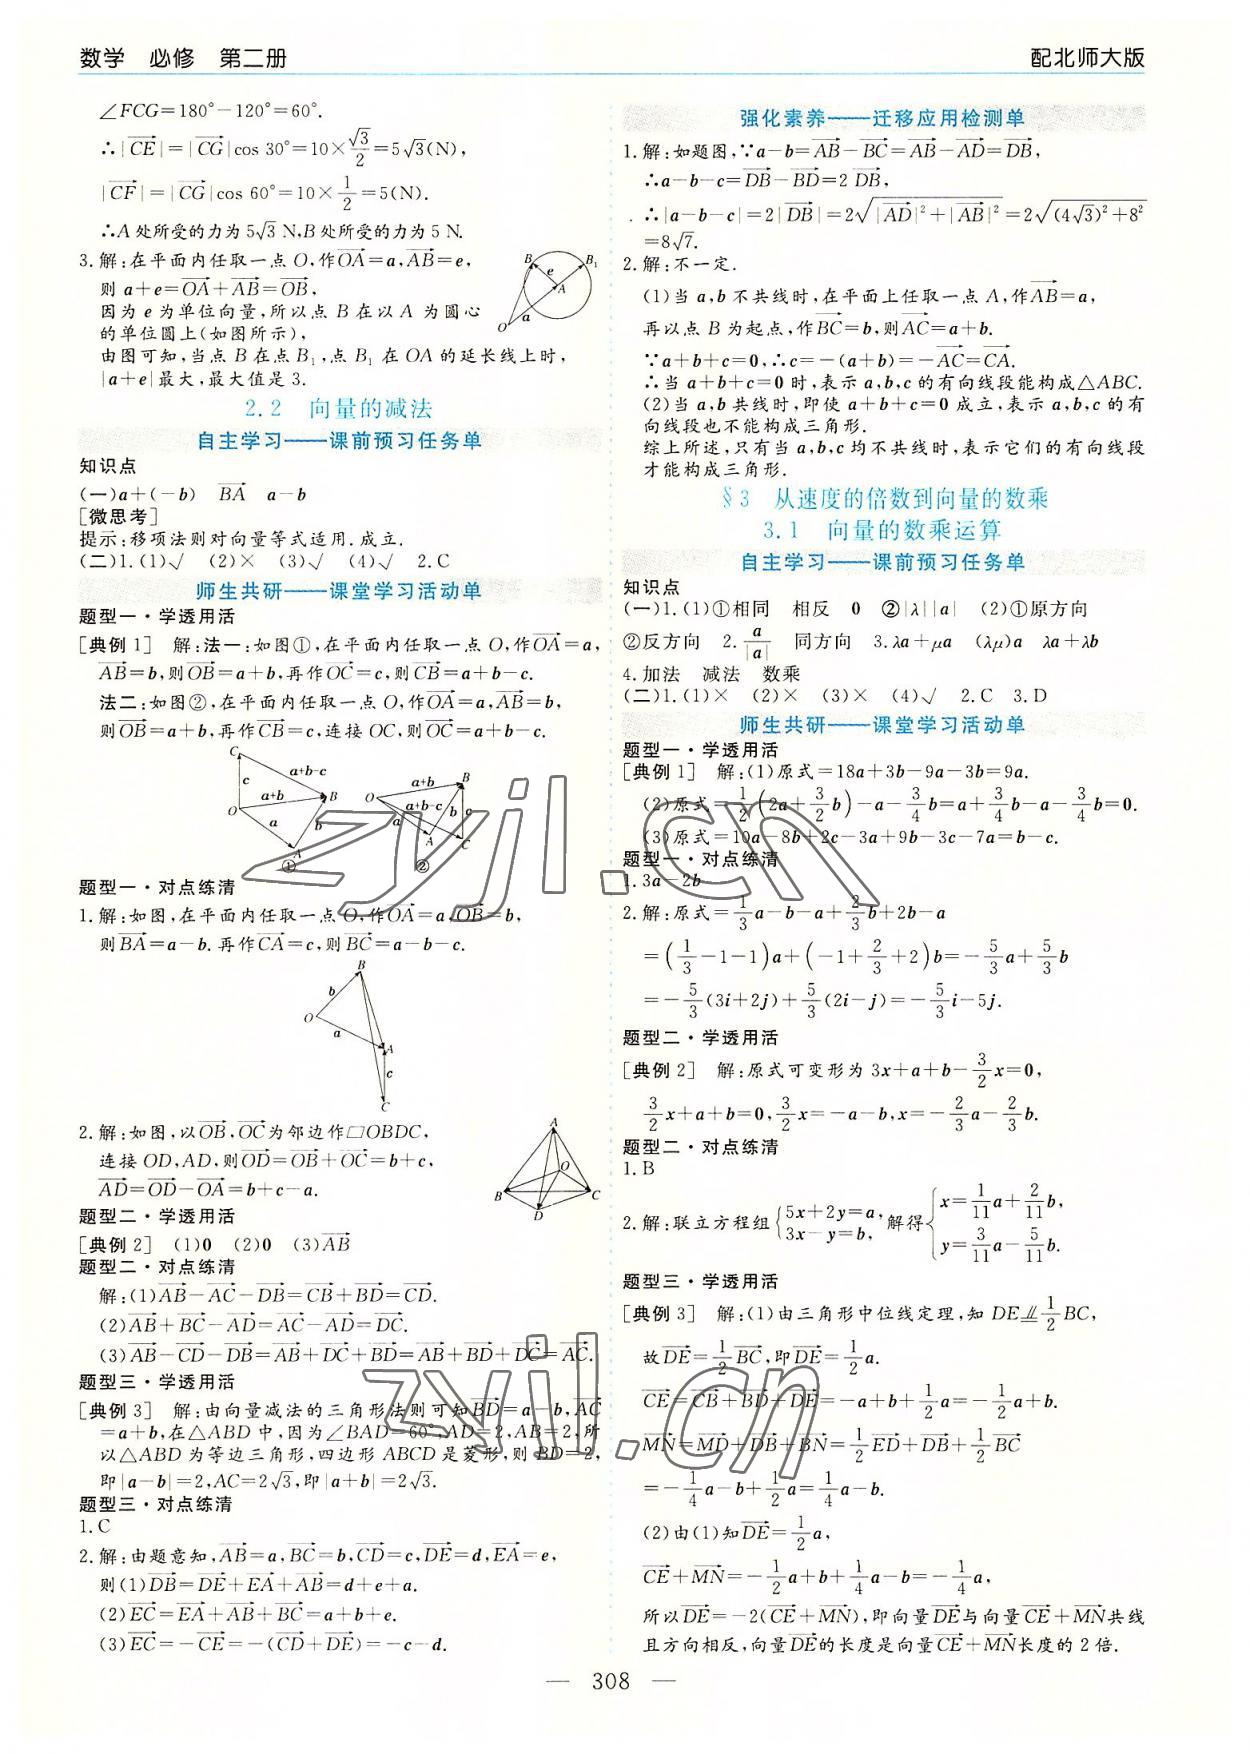 数学 必修 第二册
配北师大版
∠FCG=180°-120°=60°.
∴|CE|=|CG|cos 30°=10×√3/2=5√3(N),
|CF|=|CG|cos 60°=10×1/2=5(N).
∴A处所受的力为5√3 N,B处所受的力为5 N.
3.解:在平面内任取一点O,作OA=a,AB=e,
则a+e=OA+AB=OB,
因为e为单位向量,所以点B在以A为圆心
的单位圆上(如图所示),
由图可知,当点B在点B₁,点B₁在OA的延长线上时,
|a+e|最大,最大值是3.
B e B₁ A a O
2.2 向量的减法
自主学习——课前预习任务单
知识点
(一)a+(-b) BA a-b
[微思考]
提示:移项法则对向量等式适用.成立.
(二)1.(1)√ (2)× (3)√ (4)√ 2.C
师生共研——课堂学习活动单
题型一·学透用活
[典例1] 解:法一:如图①,在平面内任取一点O,作OA=a,
AB=b,则OB=a+b,再作OC=c,则CB=a+b-c.
法二:如图②,在平面内任取一点O,作OA=a,AB=b,
则OB=a+b,再作CB=c,连接OC,则OC=a+b-c.
C a+b-c c a+b B O a b A ①
a+b B O a+b-c b c a A C ②
题型一·对点练清
1.解:如图,在平面内任取一点O,作OA=a,OB=b,
则BA=a-b.再作CA=c,则BC=a-b-c.
B b O a A c C
2.解:如图,以OB,OC为邻边作□OBDC,
连接OD,AD,则OD=OB+OC=b+c,
AD=OD-OA=b+c-a.
A O B C D
题型二·学透用活
[典例2] (1)0 (2)0 (3)AB
题型二·对点练清
解:(1)AB-AC-DB=CB+BD=CD.
(2)AB+BC-AD=AC-AD=DC.
(3)AB-CD-DB=AB+DC+BD=AB+BD+DC=AC.
题型三·学透用活
[典例3] 解:由向量减法的三角形法则可知BD=a-b,AC
=a+b,在△ABD中,因为∠BAD=60°,AD=2,AB=2,所
以△ABD为等边三角形,四边形ABCD是菱形,则BD=2,
即|a-b|=2,AC=2√3,即|a+b|=2√3.
题型三·对点练清
1.C
2.解:由题意知,AB=a,BC=b,CD=c,DE=d,EA=e,
则(1)DB=DE+EA+AB=d+e+a.
(2)EC=EA+AB+BC=a+b+e.
(3)EC=-CE=-(CD+DE)=-c-d.
强化素养——迁移应用检测单
1.解:如题图,∵a-b=AB-BC=AB-AD=DB,
∴a-b-c=DB-BD=2 DB,
∴|a-b-c|=2|DB|=2√(|AD|²+|AB|²)=2√((4√3)²+8²)
=8√7.
2.解:不一定.
(1)当a,b不共线时,在平面上任取一点A,作AB=a,
再以点B为起点,作BC=b,则AC=a+b.
∵a+b+c=0,∴c=-(a+b)=-AC=CA.
∴当a+b+c=0时,表示a,b,c的有向线段能构成△ABC.
(2)当a,b共线时,即使a+b+c=0成立,表示a,b,c的有
向线段也不能构成三角形.
综上所述,只有当a,b,c均不共线时,表示它们的有向线段
才能构成三角形.
§3 从速度的倍数到向量的数乘
3.1 向量的数乘运算
自主学习——课前预习任务单
知识点
(一)1.(1)①相同 相反 0 ②|λ||a| (2)①原方向
②反方向 2.a/|a| 同方向 3.λa+μa (λμ)a λa+λb
4.加法 减法 数乘
(二)1.(1)× (2)× (3)× (4)√ 2.C 3.D
师生共研——课堂学习活动单
题型一·学透用活
[典例1] 解:(1)原式=18a+3b-9a-3b=9a.
(2)原式=1/2(2a+3/2b)-a-3/4b=a+3/4b-a-3/4b=0.
(3)原式=10a-8b+2c-3a+9b-3c-7a=b-c.
题型一·对点练清
1.3a-2b
2.解:原式=1/3a-b-a+2/3b+2b-a
=(1/3-1-1)a+(-1+2/3+2)b=-5/3a+5/3b
=-5/3(3i+2j)+5/3(2i-j)=-5/3i-5j.
题型二·学透用活
[典例2] 解:原式可变形为3x+a+b-3/2x=0,
3/2x+a+b=0,3/2x=-a-b,x=-2/3a-2/3b.
题型二·对点练清
1.B
2.解:联立方程组{5x+2y=a, 3x-y=b, 解得{x=1/11a+2/11b, y=3/11a-5/11b.
题型三·学透用活
[典例3] 解:(1)由三角形中位线定理,知DE⫽1/2BC,
故DE=1/2BC,即DE=1/2a.
CE=CB+BD+DE=-a+b+1/2a=-1/2a+b.
MN=MD+DB+BN=1/2ED+DB+1/2BC
=-1/4a-b+1/2a=1/4a-b.
(2)由(1)知DE=1/2a,
CE+MN=-1/2a+b+1/4a-b=-1/4a,
所以DE=-2(CE+MN),即向量DE与向量CE+MN共线
且方向相反,向量DE的长度是向量CE+MN长度的2倍.
— 308 —
zyjl.cn
zyjl.cn